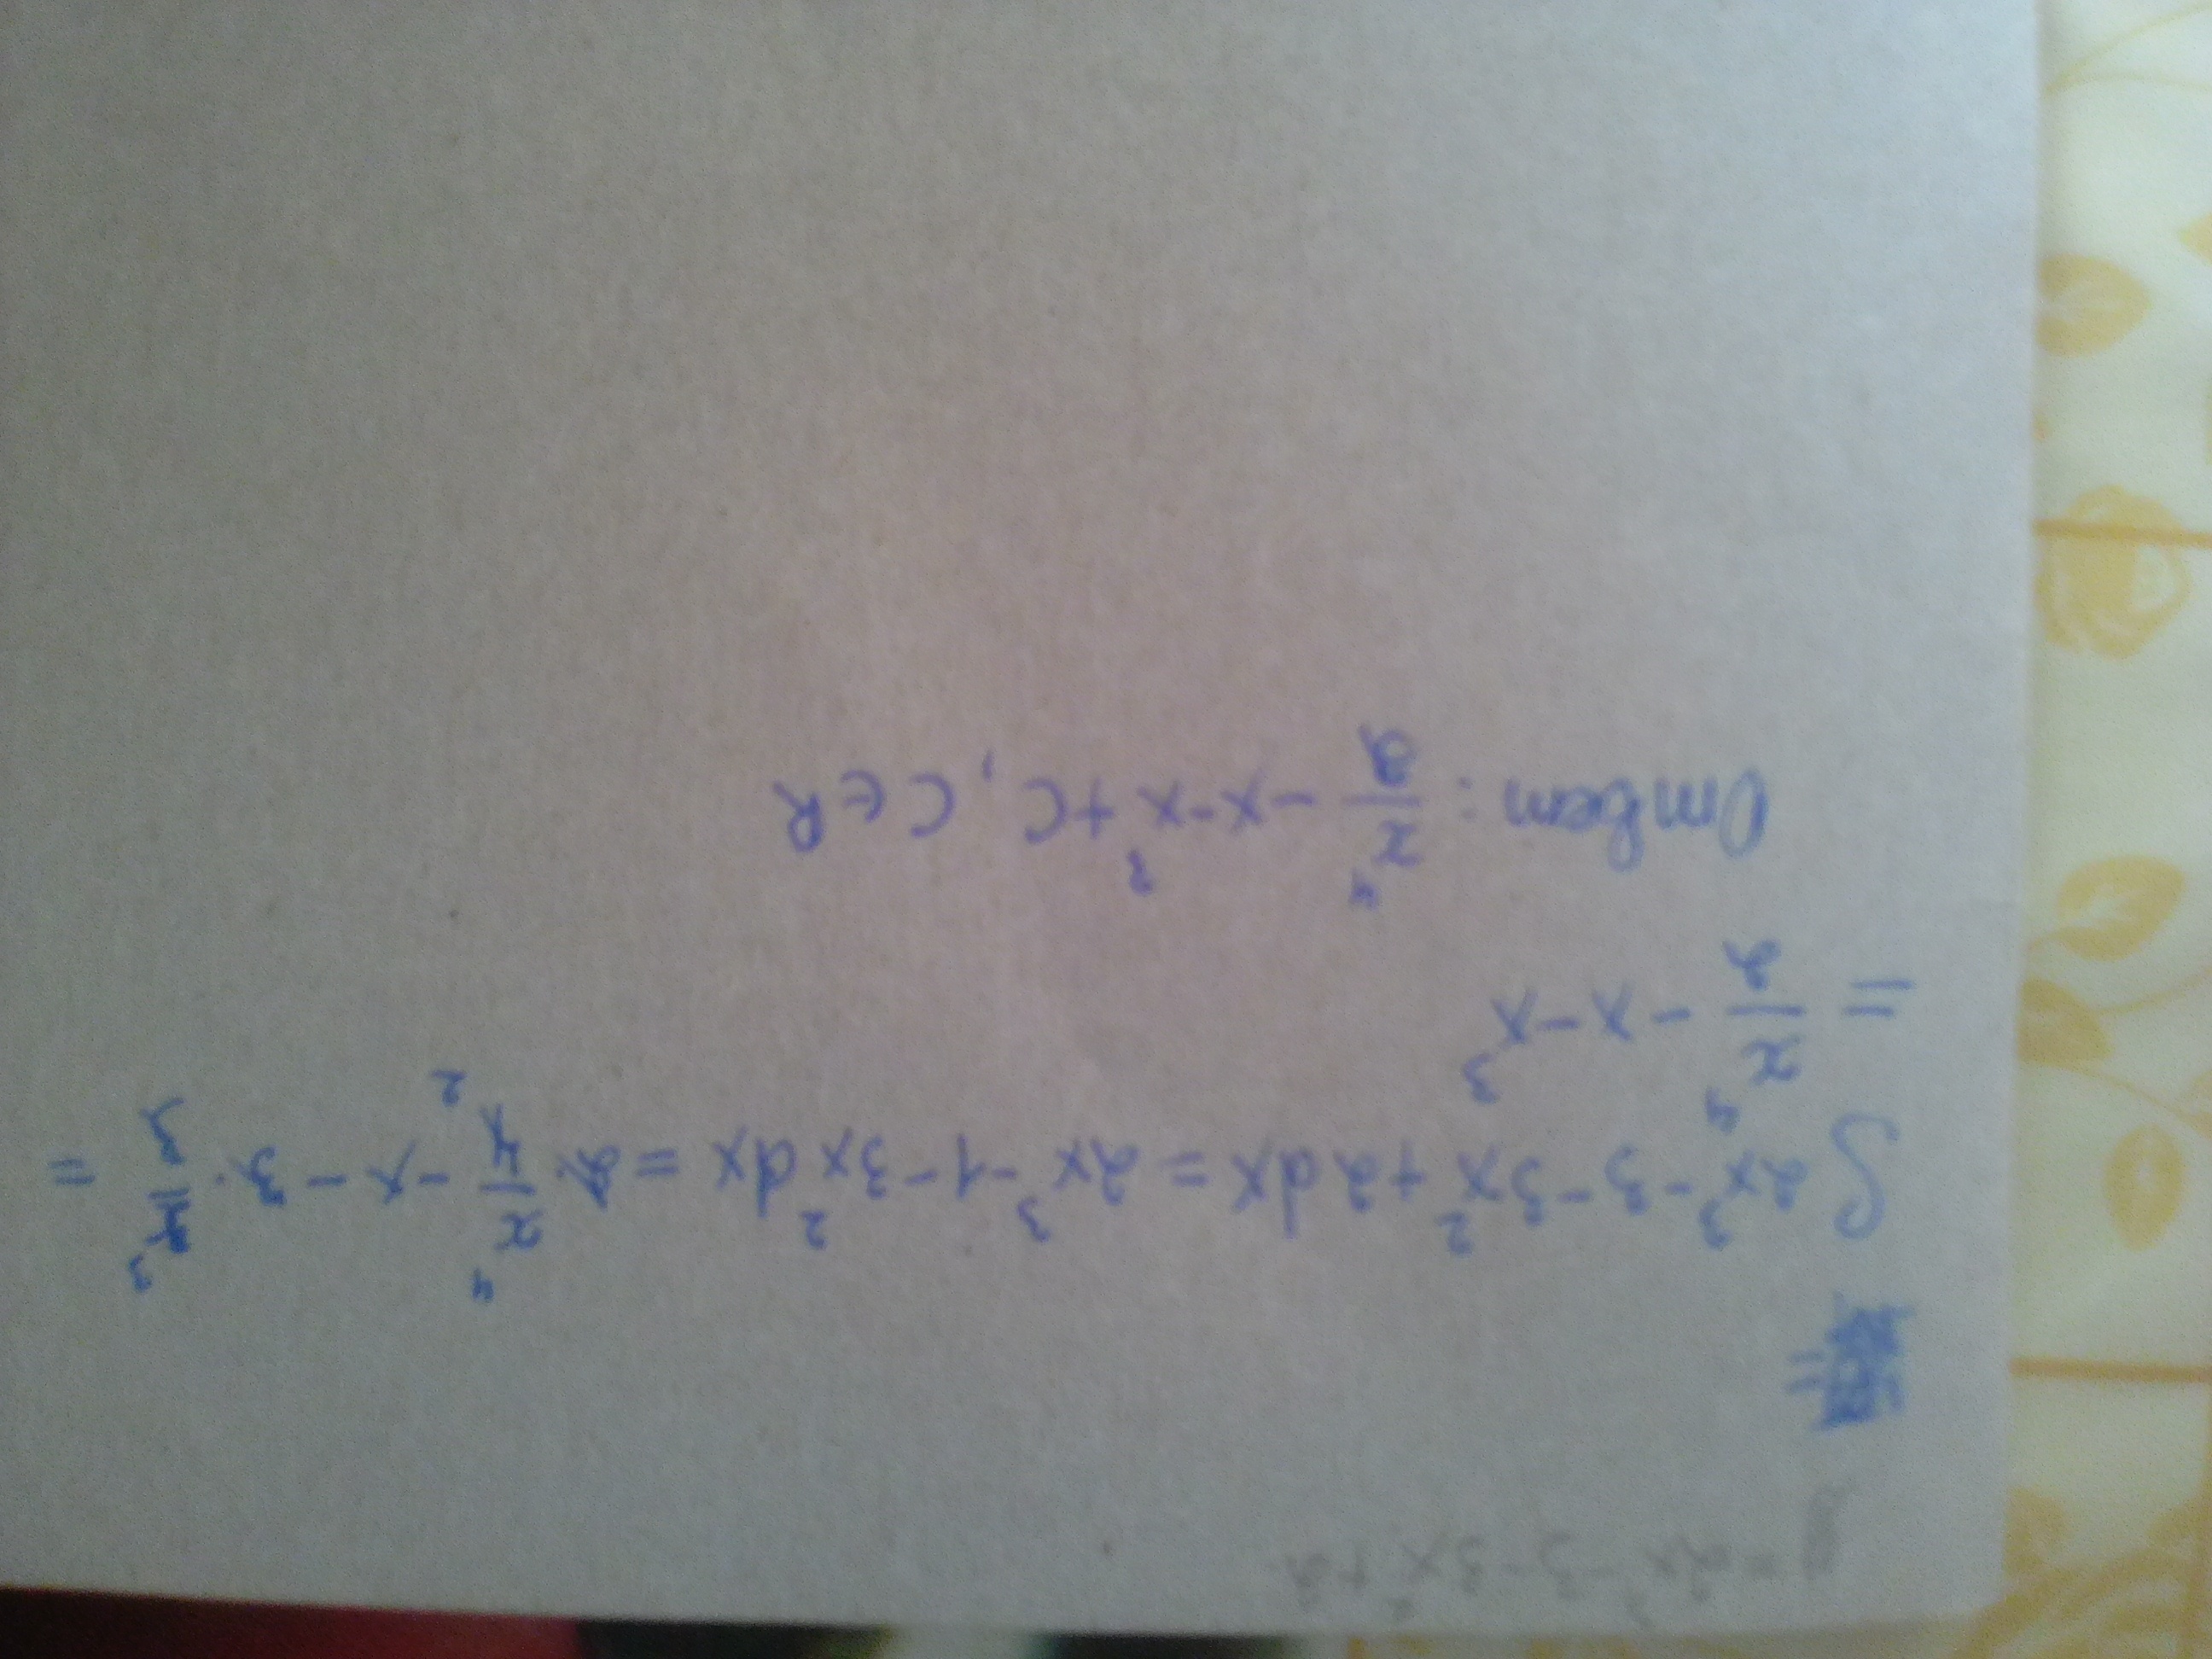 y = 2x³ - 3 - 3x² + 2
=
∫ 2x³ - 3 - 3x² + 2 dx = 2x³ - 1 - 3x² dx = 2 · x⁴/4 - x - 3 · x³/3 =
= x⁴/2 - x - x³
Ответ: x⁴/2 - x - x³ + C, C ∈ R